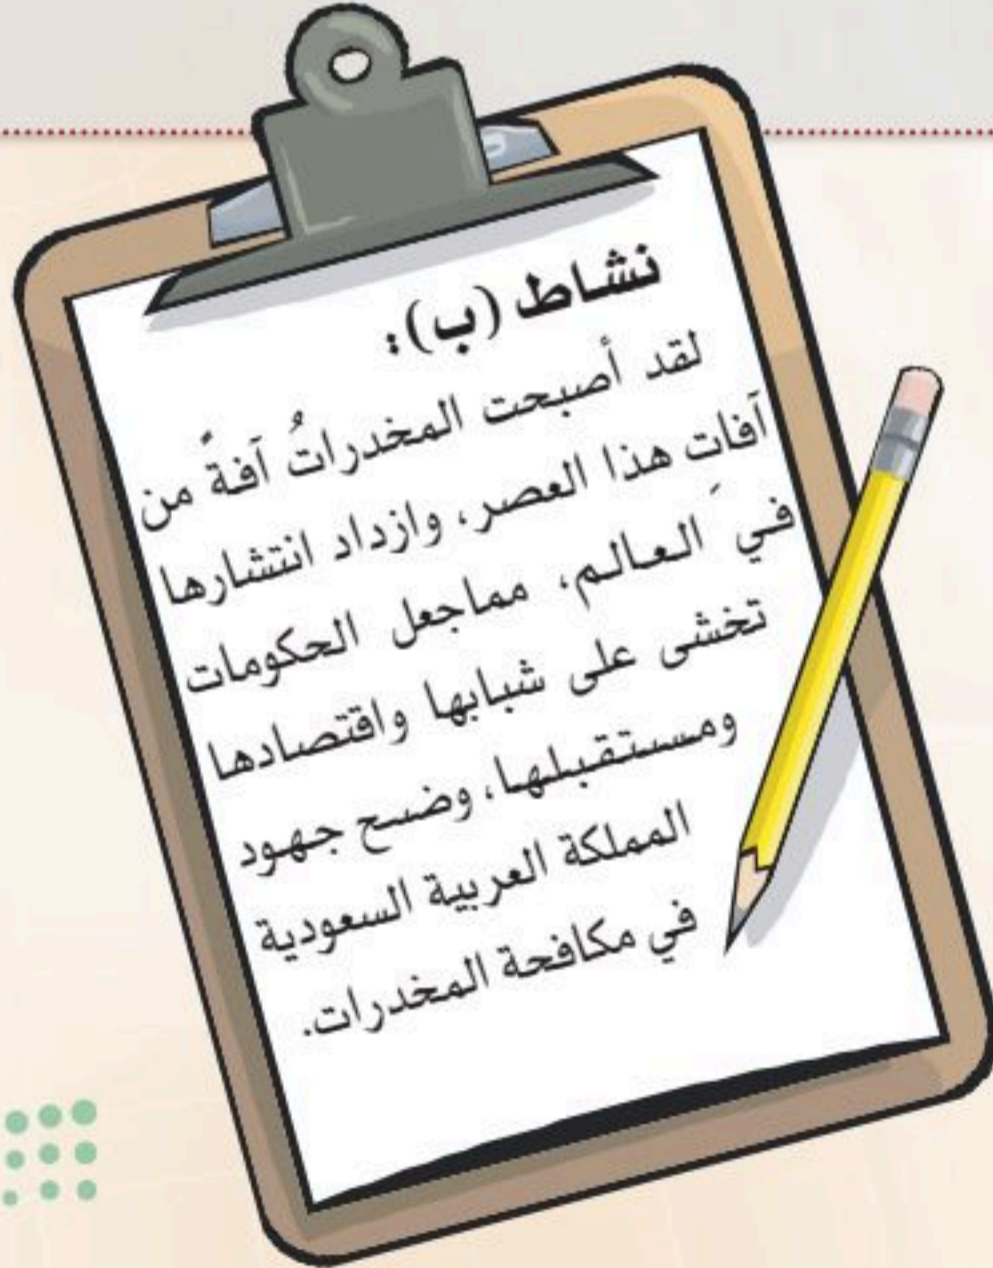 نشاط (ب):
لقد أصبحت المخدراتُ آفةً من
آفاتِ هذا العصر، وازداد انتشارها
في العالم، مماجعل الحكومات
تخشى على شبابها واقتصادها
ومستقبلها، وضح جهود
المملكة العربية السعودية
في مكافحة المخدرات.